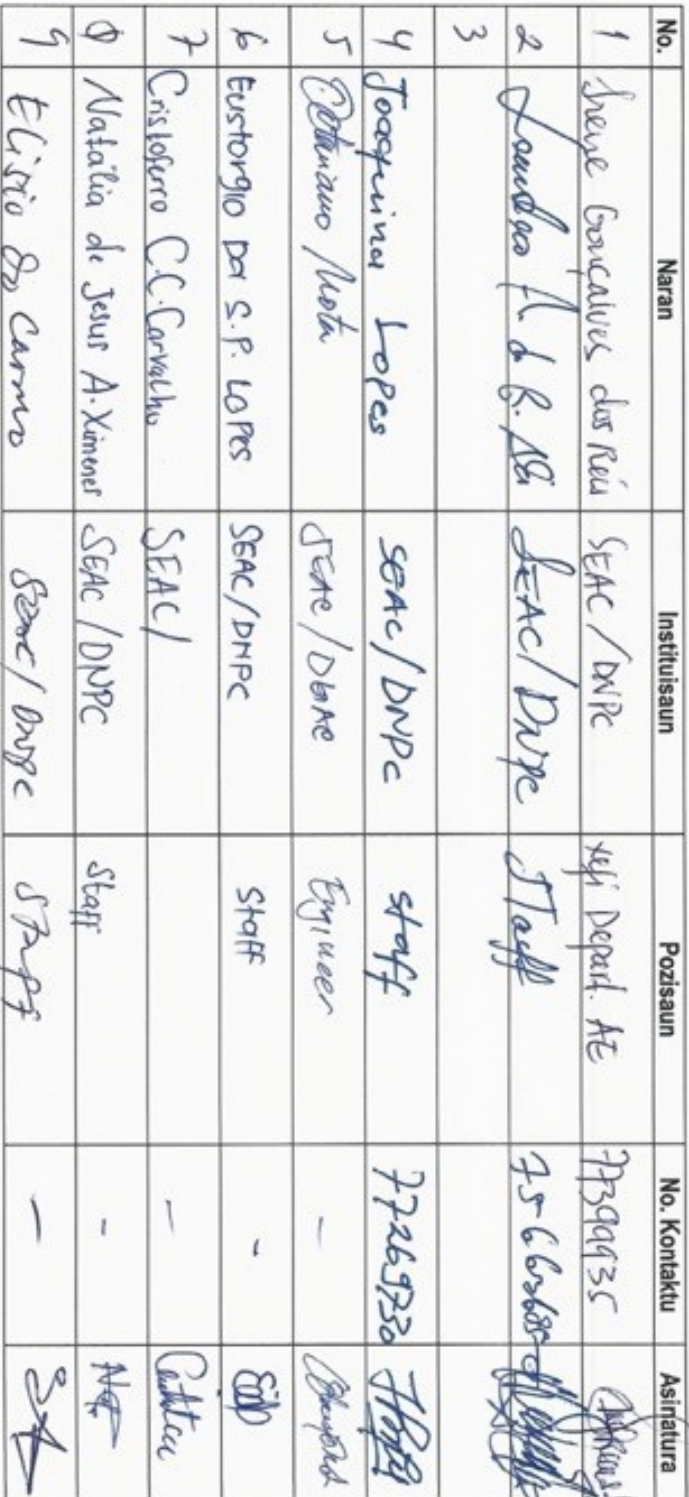 No. Naran Instituisaun Pozisaun No. Kontaktu Asinatura
1 Irene Gonçalves dos Reis SEAC/DNPC xefi Depart. AE 77399935
2 SEAC/DNPC Staff
3
4 Joaquina Lopes SEAC/DNPC staff 77269730
5 Mota SEAC/DGAC Engineer -
6 Eustorgio Da S.P. LOPES SEAC/DNPC Staff -
7 Cristoferro C.C. Carvalho SEAC/ -
8 Natália de Jesus A. Ximenes SEAC/DNPC Staff -
9 Elisio Do Carmo SEAC/DNPC Staff -